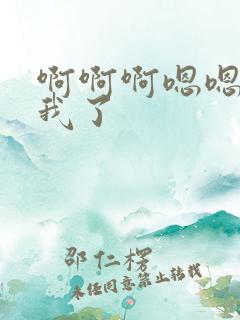 啊啊啊嗯嗯
我了
邵仁楞
未经同意禁止转载